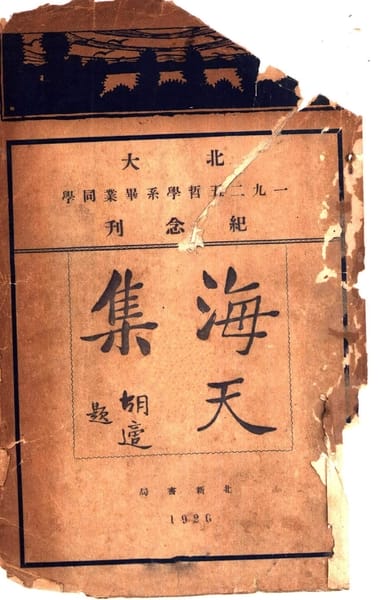 北大
一九二五哲學系畢業同學
紀念刊
海天
集
胡適
題
北新書局
1926